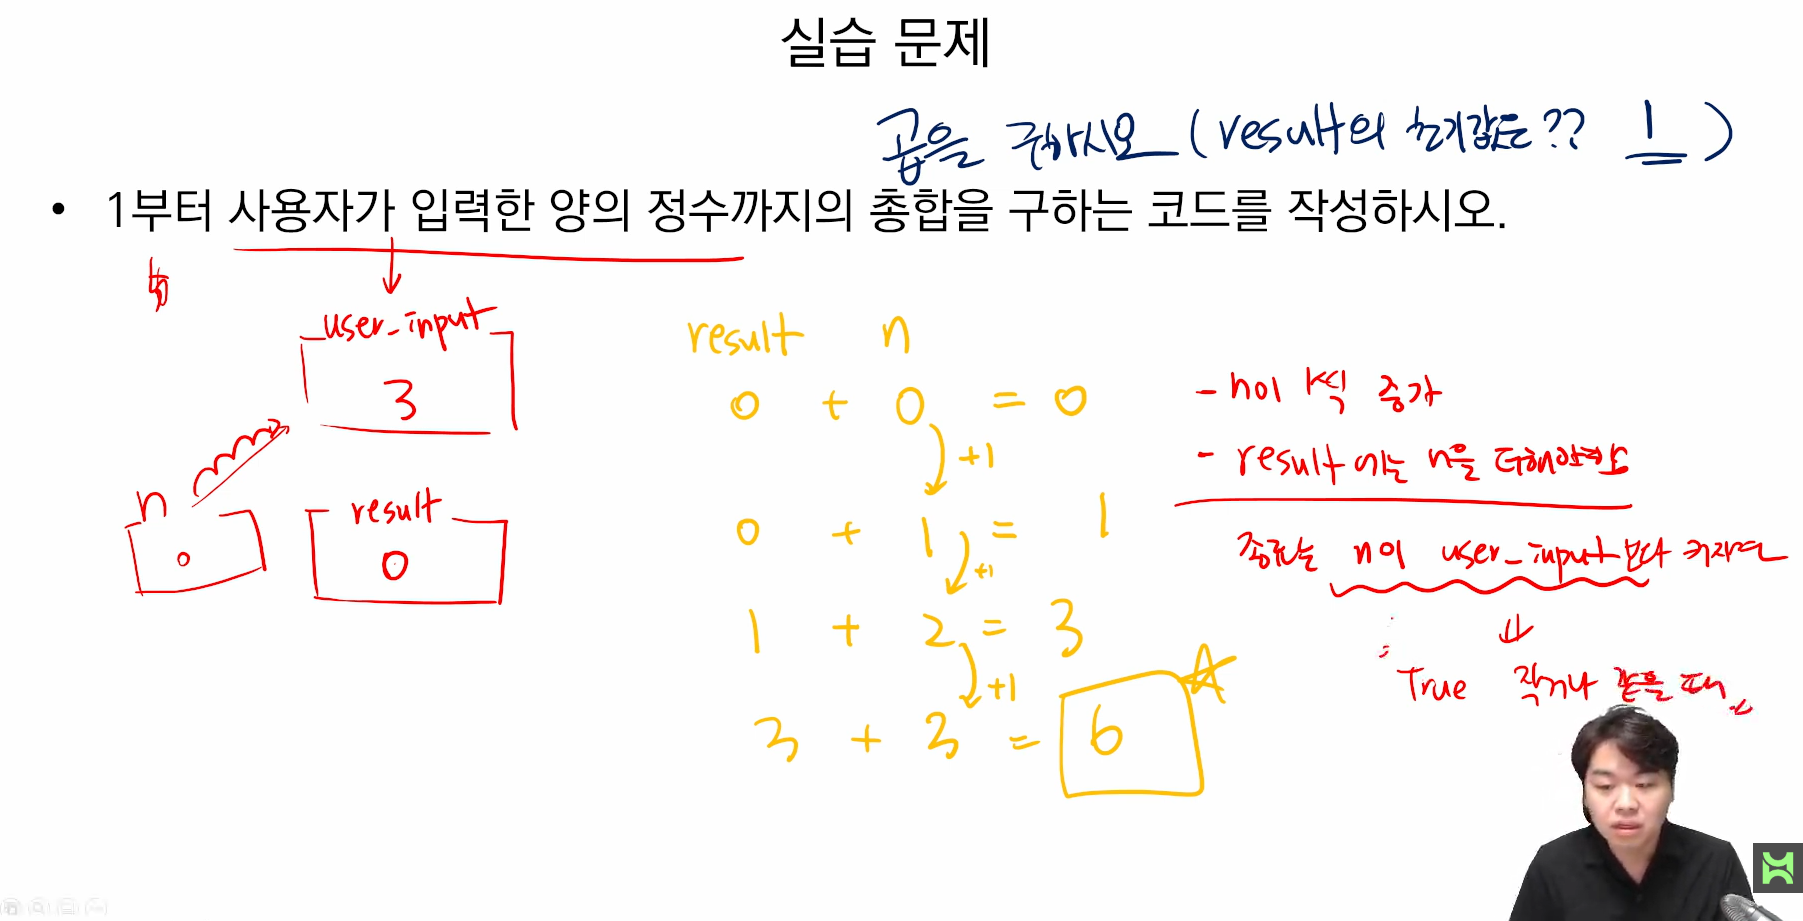 실습 문제
곱을 구하시오 (result의 초기값은?? 1)
• 1부터 사용자가 입력한 양의 정수까지의 총합을 구하는 코드를 작성하시오.
user_input
3
n
0
result
0
result n
0 + 0 = 0
+1
0 + 1 = 1
+1
1 + 2 = 3
+1
3 + 3 = 6
- n이 1씩 증가
- result에는 n을 더해야함
종료는 n이 user_input보다 커지면
True 작거나 같을 때